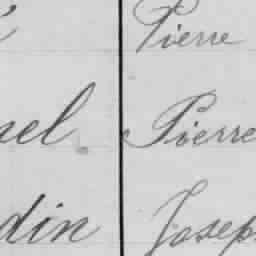 Pierre
nel Pierre
din Joseph